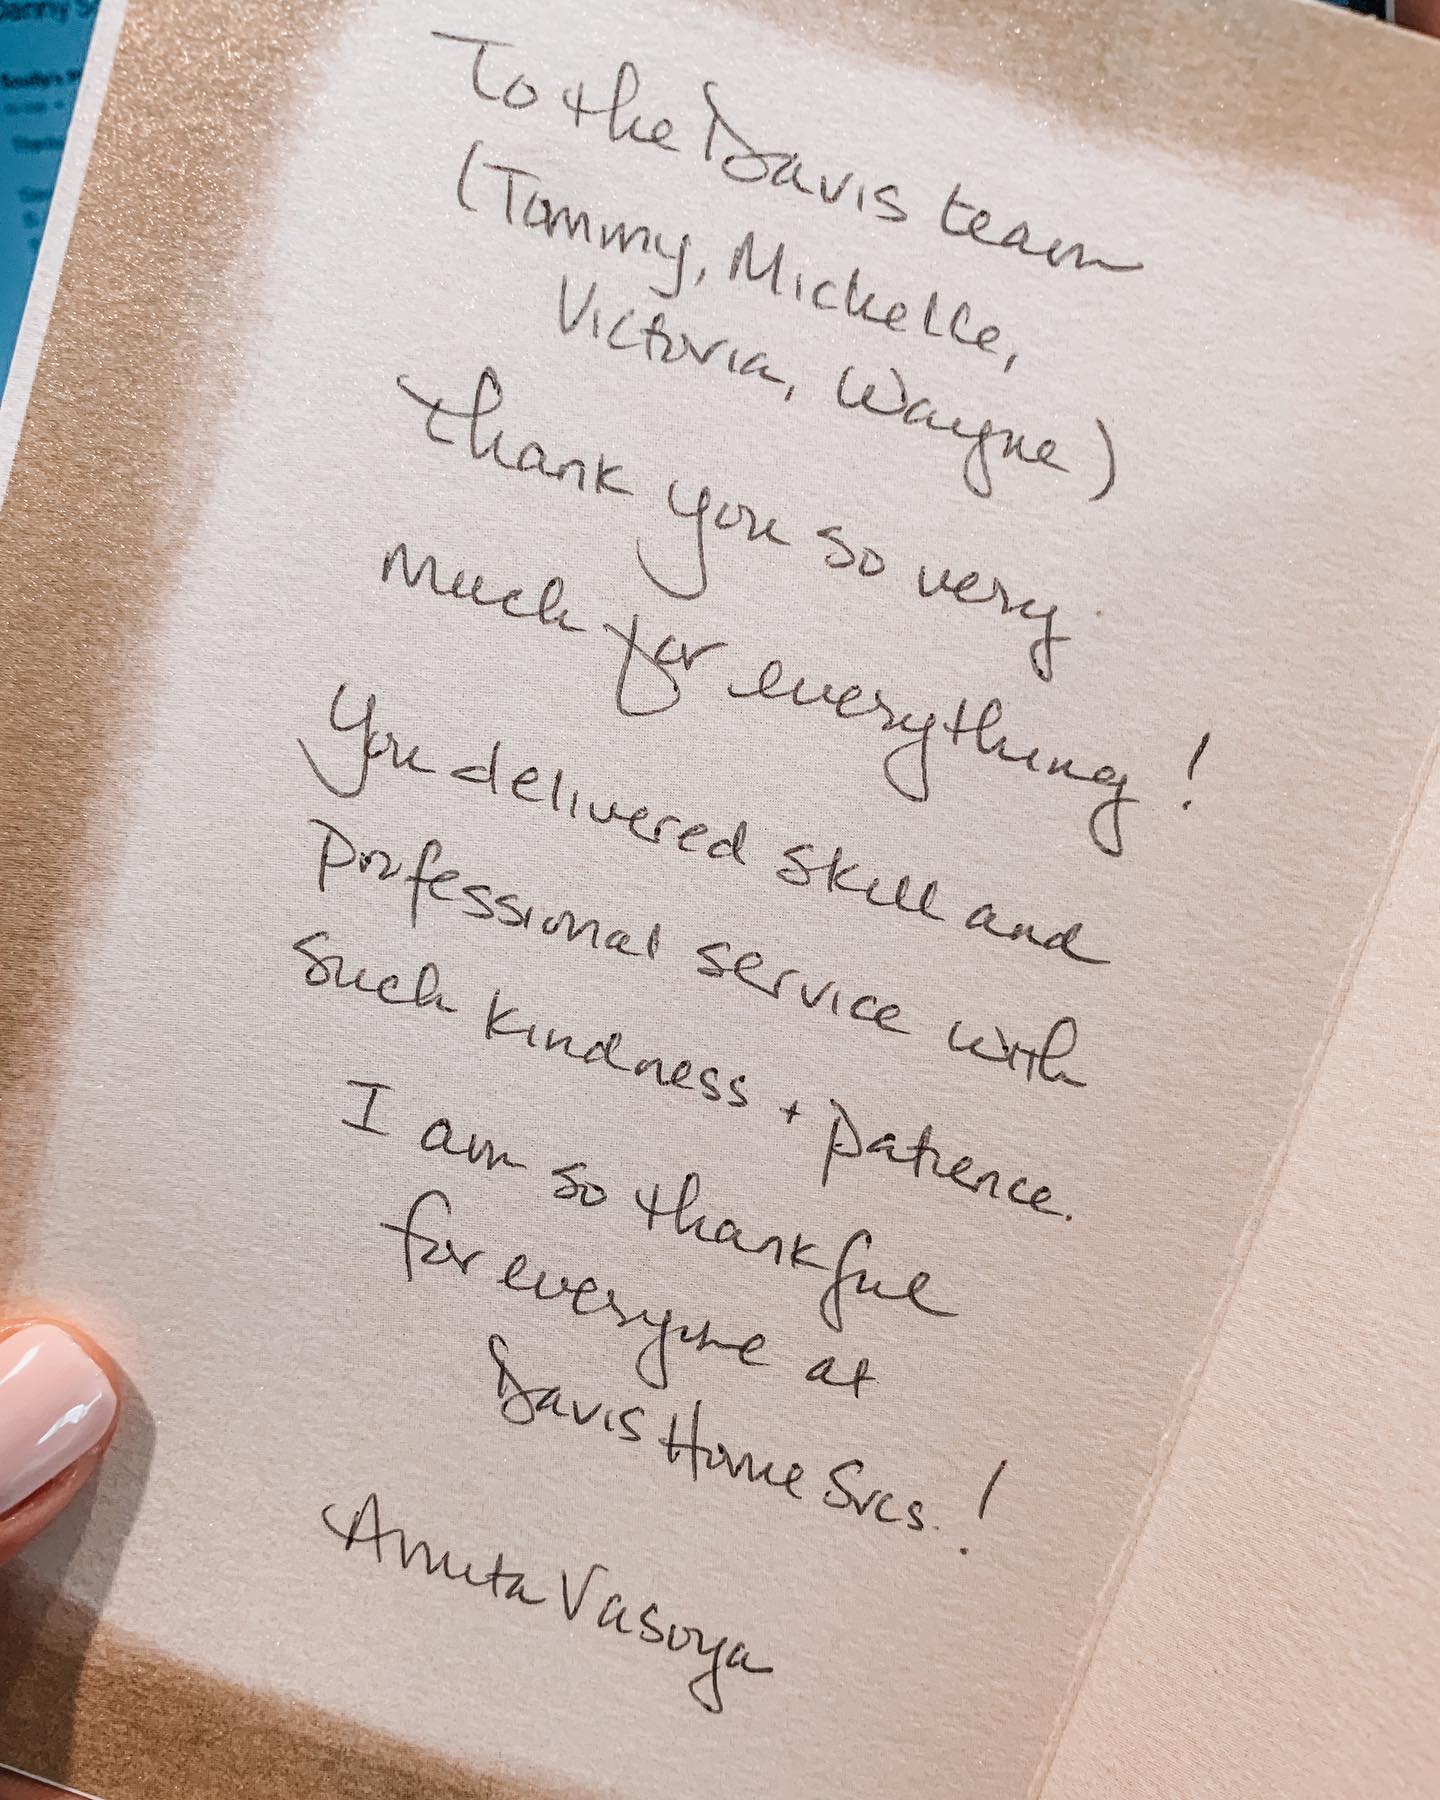 To the Davis team
(Tommy, Michelle,
Victoria, Wayne)
thank you so very
much for everything!
You delivered skill and
professional service with
such kindness + patience.
I am so thankful
for everyone at
Davis Home Srcs.!
Vasoya